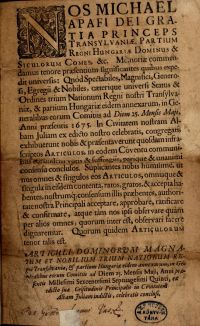 NOS MICHAEL
APAFI DEI GRA-
TIA PRINCEPS
TRANSYLVANIÆ, PARTIUM
REGNI HUNGARIÆ DOMINUS &
SICULORUM COMES, &c. Memoriæ commen-
damus tenore præsentium significantes quibus expe-
dit universis: Quòd Spectabiles, Magnifici, Genero-
si, Egregii & Nobiles, cæterique universi Status &
Ordines trium Nationum Regni nostri Transylva-
niæ, & partium Hungariæ eidem annexarum, in Ge-
neralibus eorum Comitiis ad Diem 25. Mensis Maji,
Anni præsentis 1675. In Civitatem nostram Al-
bam Juliam ex edicto nostro celebratis, congregati
exhibuerunt nobis & præsentaverunt quosdam infra
scriptos ARTICULOS in eisdem Coventu communi-
bus
consensu conclusos. Supplicantes nobis humillimè, ut
nos omnes & singulos eos ARTICULOS, omniaque &
singula in eisdem contenta, ratos, gratos, & accepta ha-
bentes, nostrumque consensum illis præbentes, authori-
tate nostra Principali acceptare, approbare, ratificare
& confirmare, atque tàm nos ipsi observare quàm
per alios omnes quorum inter est, observari facere
dignaremur. Quorum quidem ARTICULORUM
tenor talis est.
ARTICULI DOMINORUM MAGNA-
TUM ET NOBILIUM TRIUM NATIONUM RE-
gni Transylvaniæ, & partium Hungariæ eidem annexarum, in Ge-
neralibus eorum Comitiis ad Diem 25 Mensis Maji, Anni præ-
sentis Millesimi Sexcentesimi Septuagesimi Quinti, ex
edicto suæ Celsitudinis Principalis in Civitatem
Albam Juliam indictis, celebratis conclusi.